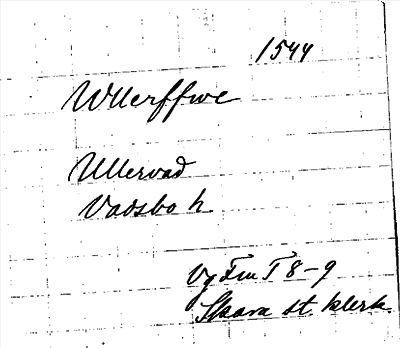 1544
Wllerffwe
Ullervad
Vadsbo h
Vg Fm T 8-9
Skara st. klerk.